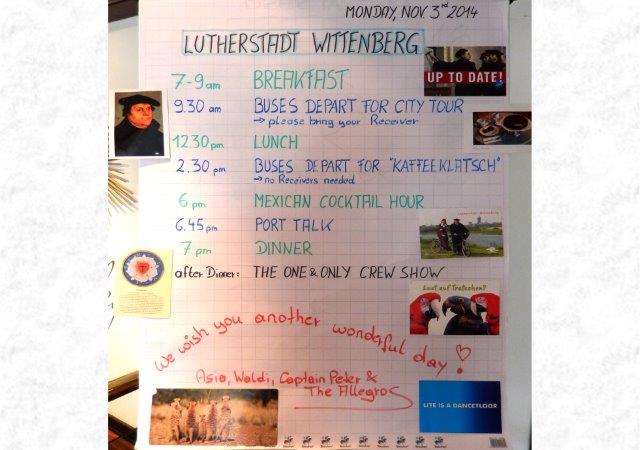 MONDAY, NOV 3rd 2014
LUTHERSTADT WITTENBERG
UP TO DATE!
7-9 am BREAKFAST
9.30 am BUSES DEPART FOR CITY TOUR
→ please bring your Receiver
12.30 pm LUNCH
2.30 pm BUSES DEPART FOR "KAFFEEKLATSCH"
→ no Receivers needed
6 pm MEXICAN COCKTAIL HOUR
6.45 pm PORT TALK
7 pm DINNER
after Dinner: THE ONE & ONLY CREW SHOW
Lust auf Tratschen?
We wish you another wonderful day!
Asia, Waldi, Captain Peter &
The Allegros
LIFE IS A DANCEFLOOR